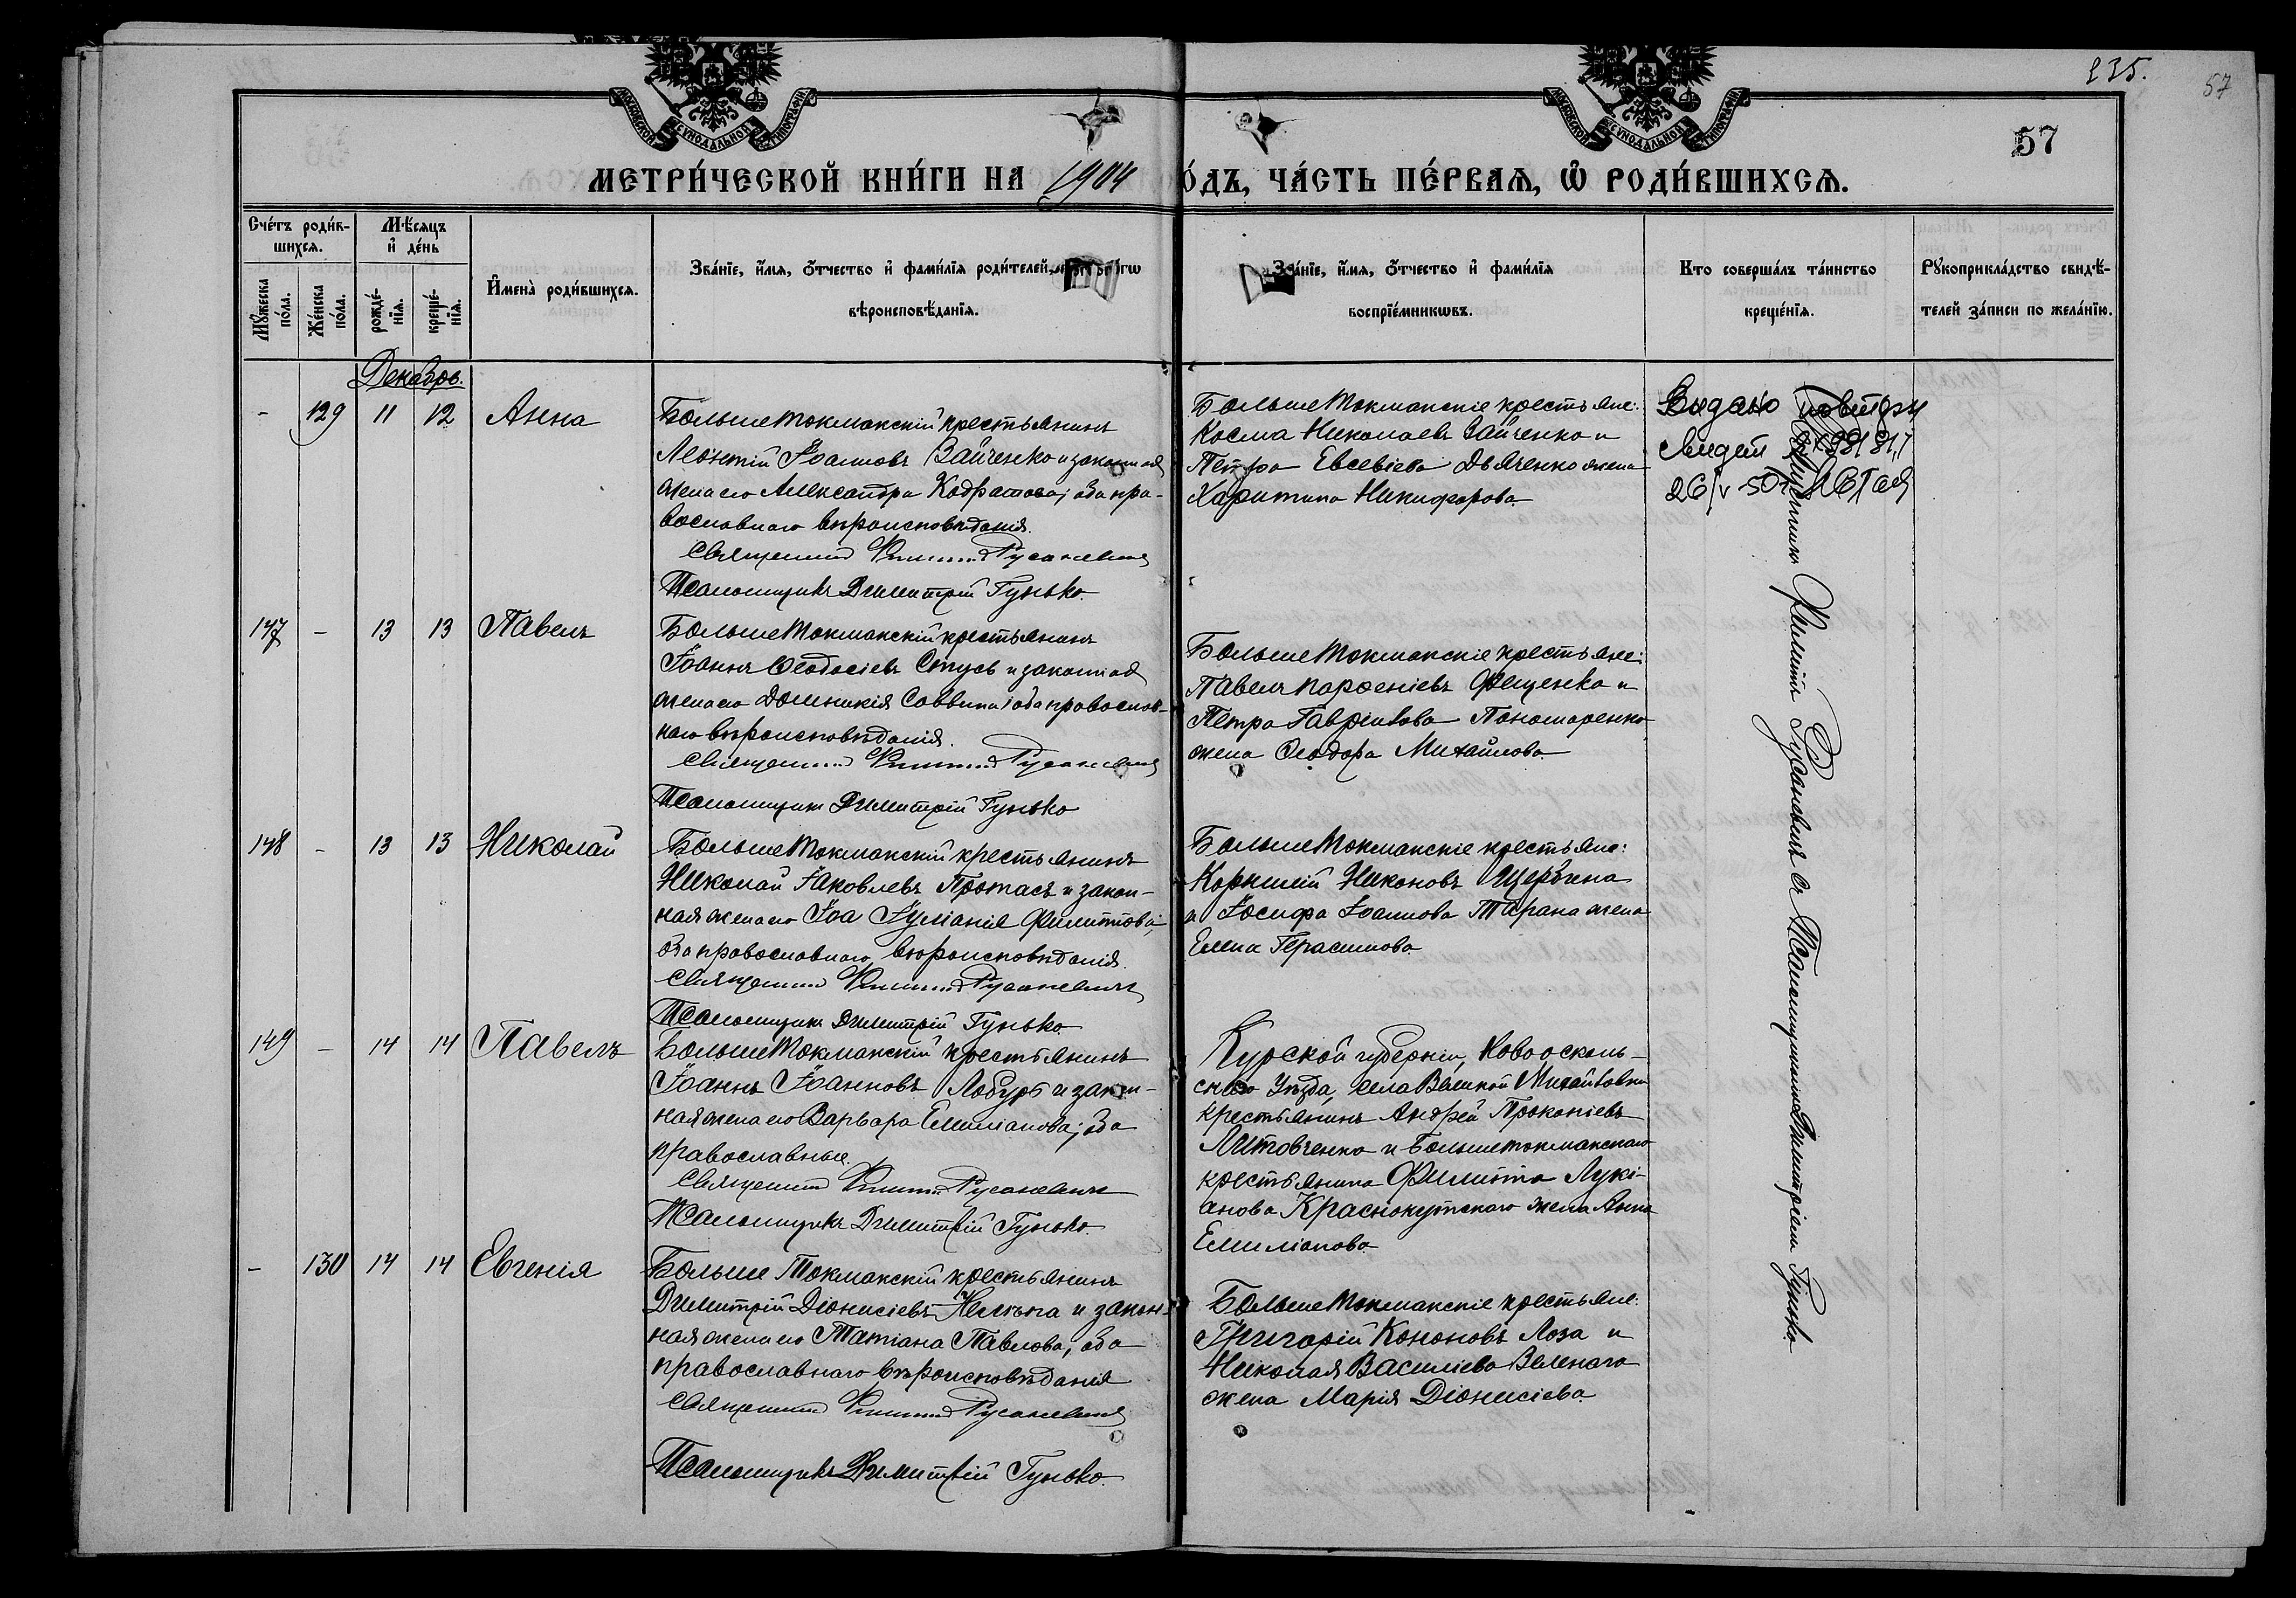 235.
57
57
МОСКОВСКОЙ СѴНОДАЛЬНОЙ ТИПОГРАФІИ
МОСКОВСКОЙ СѴНОДАЛЬНОЙ ТИПОГРАФІИ
МЕТРИ́ЧЕСКОЙ КНИ́ГИ НА 1904 О́ДЪ, ЧА́СТЬ ПЕ́РВАѦ, Ѡ҆ РОДИ́ВШИХСѦ.
Сче́тъ роди́в-
шихсѧ.
Мѣ́сѧцъ
и҆ де́нь
Мꙋ́жеска
по́ла.
Же́нска
по́ла.
рожде́-
нїѧ.
креще́-
нїѧ.
И҆мена̀ роди́вшихсѧ.
Зва́нїе, и҆́мѧ, ѻ҆́тчество и҆ фами́лїѧ роди́телей,
вѣроисповѣ́данїѧ.
Зва́нїе, и҆́мѧ, ѻ҆́тчество и҆ фами́лїѧ
воспрїе́мникѡвъ.
Кто соверша́лъ та́инство
креще́нїѧ.
Рꙋкоприкла́дство свидѣ́-
телей за́писи по жела́нїю.
Декабрь.
- 129 11 12 Анна
Больше Токмакскій крестьянинъ
Леонтій Іоанновъ Зайченко и законная
жена его Александра Кодратова; оба пра-
вославнаго вѣроисповѣданія.
Священникъ Филиппъ Русаневичъ
Псаломщикъ Димитрій Гунько.
Больше Токмакскіе крестьяне:
Косма Николаевъ Зайченко и
Петра Евсевіева Дьяченко жена
Харитина Никифорова.
Видано повторн
свидет
26/V 50
147 - 13 13 Павелъ
Больше Токмакскій крестьянинъ
Іоаннъ Ѳеодосіевъ Стусь и законная
жена его Домникія Саввина; оба православ-
наго вѣроисповѣданія.
Священникъ Филиппъ Русаневичъ
Псаломщикъ Димитрій Гунько
Больше Токмакскіе крестьяне:
Павелъ Парѳеніевъ Фещенко и
Петра Гавріилова Пономаренко
жена Ѳеодора Михайлова.
148 - 13 13 Николай
Больше Токмакскій крестьянинъ
Николай Іаковлевъ Протасъ и закон-
ная жена его Іуліанія Филиппова;
оба православнаго вѣроисповѣданія.
Священникъ Филиппъ Русаневичъ
Псаломщикъ Димитрій Гунько.
Больше Токмакскіе крестьяне:
Корнилій Никоновъ Щербина
и Іосифа Іоаннова Тарана жена
Елена Герасимова.
149 - 14 14 Павелъ
Больше Токмакскій крестьянинъ
Іоаннъ Іоанновъ Лобуръ и закон-
ная жена его Варвара Емиліанова; оба
православные.
Священникъ Филиппъ Русаневичъ
Псаломщикъ Димитрій Гунько.
Курской губерніи, Новоосколь-
скаго Уѣзда, села Великой Михайловки
крестьянинъ Андрей Прокопіевъ
Литовченко и Большетокмакскаго
крестьянина Филиппа Лукі-
анова Краснокутскаго жена Анна
Емиліанова.
- 130 14 14 Евгенія
Больше Токмакскій крестьянинъ
Димитрій Діонисіевъ и закон-
ная жена его Татіана Павлова, оба
православнаго вѣроисповѣданія
Священникъ Филиппъ Русаневичъ
Псаломщикъ Димитрій Гунько.
Больше Токмакскіе крестьяне:
Григорій Кононовъ Лоза и
Николая Василіева Зеленаго
жена Марія Діонисіева.
Священникъ Филиппъ Русаневичъ съ Псаломщикомъ Димитріемъ Гунько.